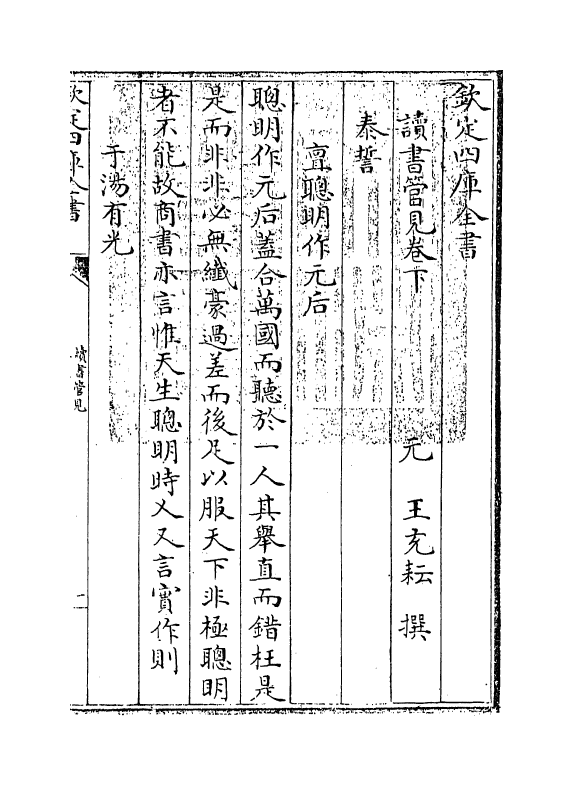 欽定四庫全書
讀書管見卷下　元　王充耘　撰
泰誓
亶聰明作元后
聰明作元后蓋合萬國而聽於一人其舉直而錯枉是
是而非非必無纖豪過差而後足以服天下非極聰明
者不能故商書亦言惟天生聰明時乂又言實作則
于湯有光
欽定四庫全書
讀書管見